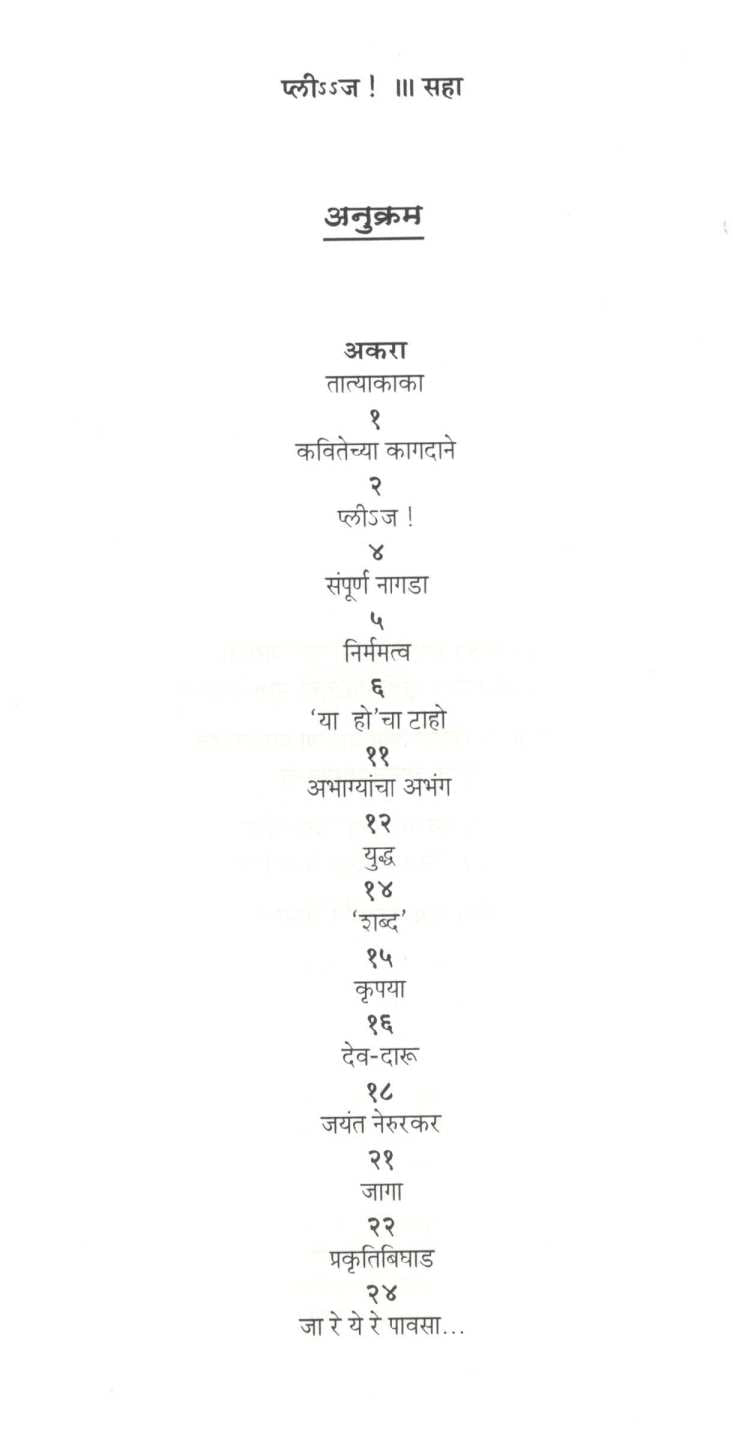 प्लीऽऽज ! ॥। सहा
अनुक्रम
अकरा
तात्याकाका
१
कवितेच्या कागदाने
२
प्लीऽज !
४
संपूर्ण नागडा
५
निर्ममत्व
६
‘या हो’चा टाहो
११
अभाग्यांचा अभंग
१२
युद्ध
१४
‘शब्द’
१५
कृपया
१६
देव-दारू
१८
जयंत नेरुरकर
२१
जागा
२२
प्रकृतिबिघाड
२४
जा रे ये रे पावसा...